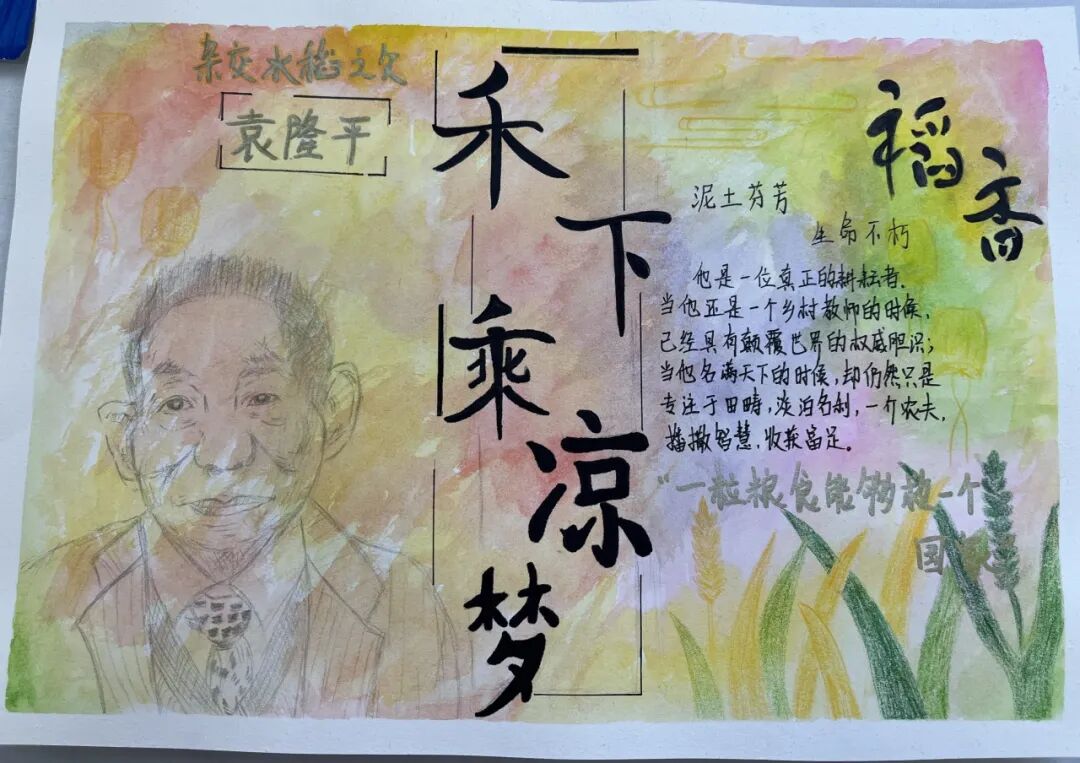 杂交水稻之父
袁隆平
禾下乘凉梦
稻香
泥土芬芳
生命不朽
他是一位真正的耕耘者.
当他还是一个乡村教师的时候,
已经具有颠覆世界的权威胆识;
当他名满天下的时候,却仍然只是
专注于田畴,淡泊名利,一介农夫,
播撒智慧,收获富足。
"一粒粮食能够救一个
国